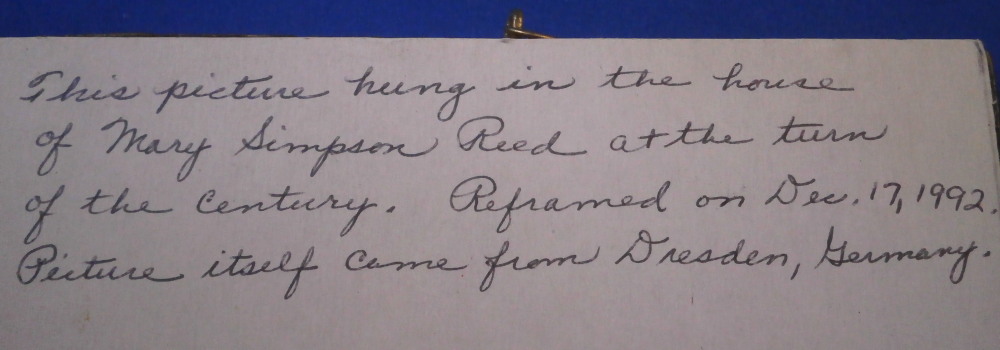 This picture hung in the house
of Mary Simpson Reed at the turn
of the century. Reframed on Dec. 17, 1992.
Picture itself came from Dresden, Germany.